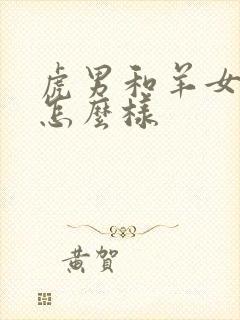 虎男和羊女
怎麼樣
黄賀